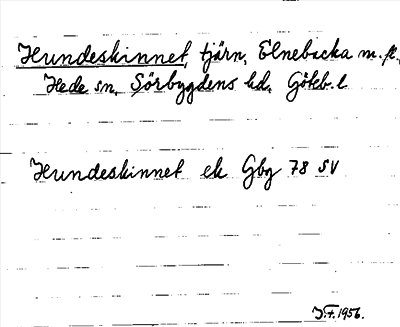 Hundeskinnet, tjärn, Elnebacka m. fl.
Hede sn, Sörbygdens hd, Göteb. l
Hundeskinnet ek Gbg 78 SV
J.+.1956.